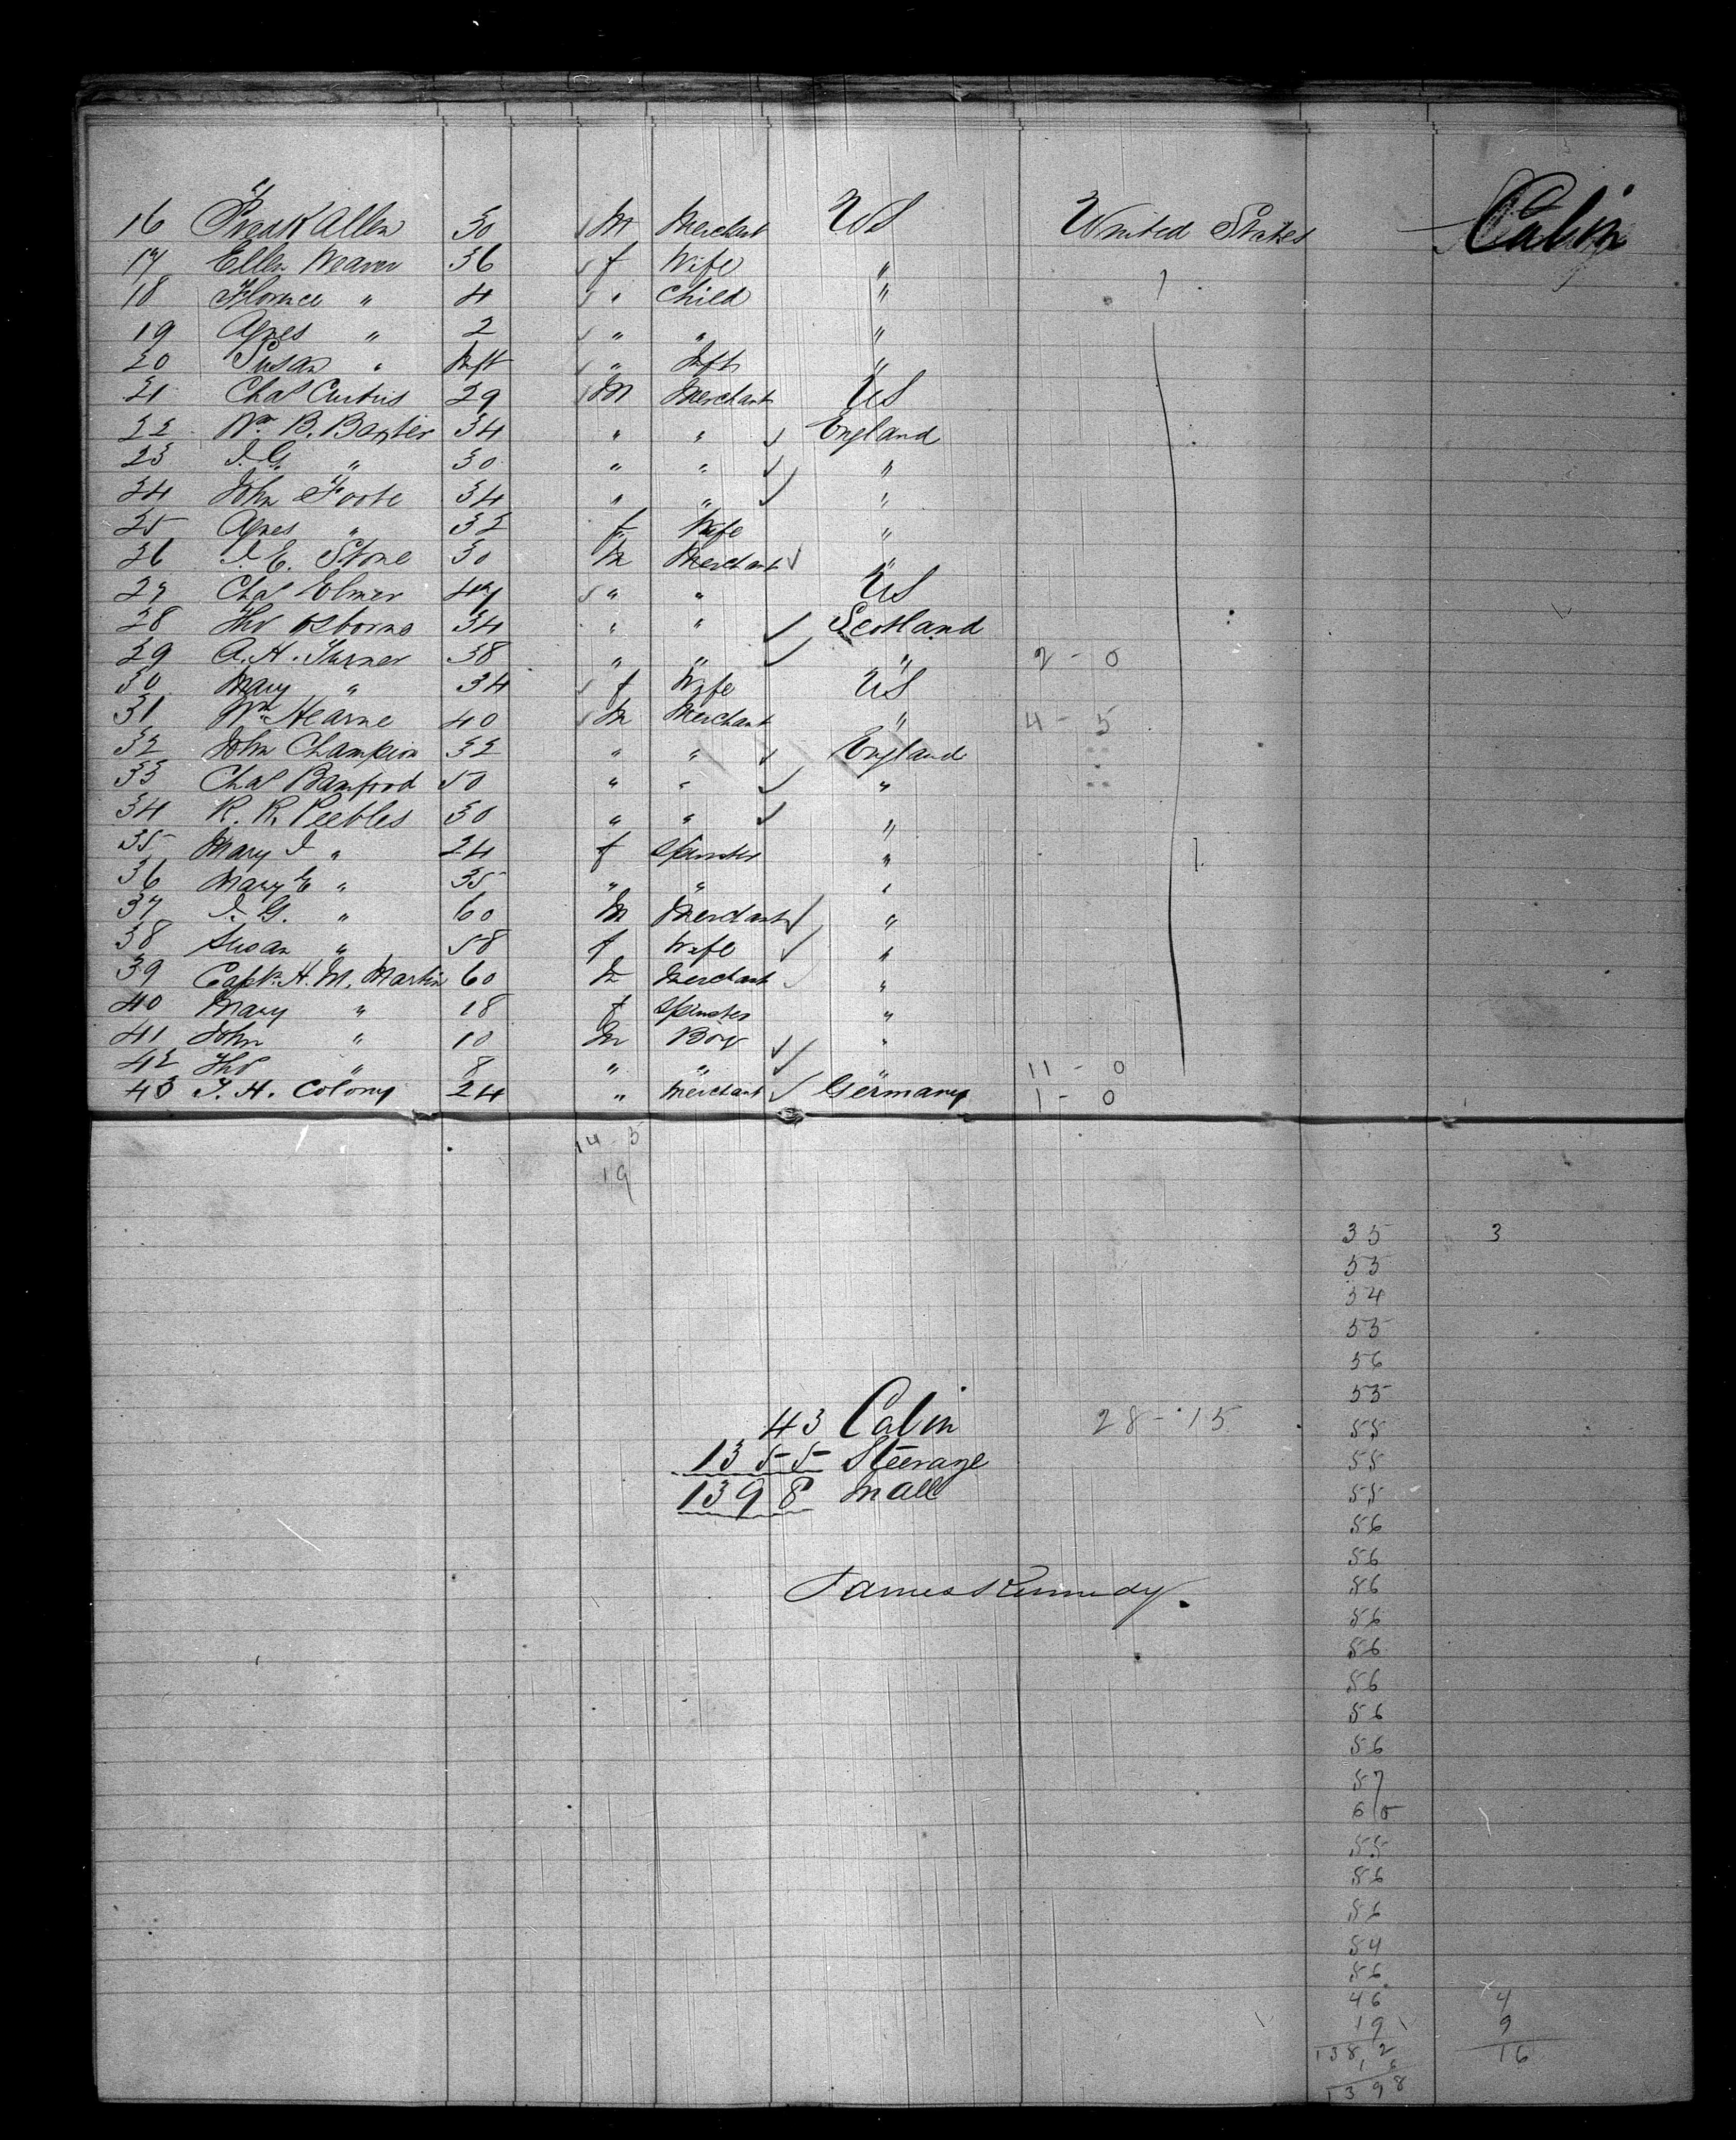 16 Fredk Allen 30 M Merchant US United States Cabin
17 Ellen Weaver 36 f Wife "
18 Florence " 4 " Child "
19 Agnes " 2 " " "
20 Susan " Inft " Inft "
21 Chas Curtis 29 M Merchant US
22 Wm B. Baxter 34 " " England
23 J. G. " 30 " " "
24 John Foote 34 " " "
25 Agnes " 32 f Wife "
26 J. E. Stone 30 M Merchant "
27 Chas Elmer 47 " " US
28 Thos Osborne 34 " " Scotland
29 A. H. Turner 38 " " " 2 - 0
30 Mary " 34 f Wife US
31 Wm Hearne 40 M Merchant " 4 - 5
32 John Champion 32 " " England
33 Chas Bamford 50 " " "
34 R. R. Peebles 30 " " "
35 Mary J " 24 f Spinster "
36 Mary E " 35 " " "
37 J. G. " 60 M Merchant "
38 Susan " 58 f Wife "
39 Captn H. M. Martin 60 M Merchant "
40 Mary " 18 f Spinster "
41 John " 10 M Boy "
42 Thos " 8 " " " 11 - 0
43 J. H. Colony 24 " Merchant Germany 1 - 0
14 - 5
19
35 3
55
54
55
56
55
43 Cabin 28 - 15 55
1355 Steerage 55
1398 In all 55
56
56
James Kennedy. 56
56
56
56
56
56
57
60
55
56
56
54
56
46 4
19 9
1382 16
16
1398